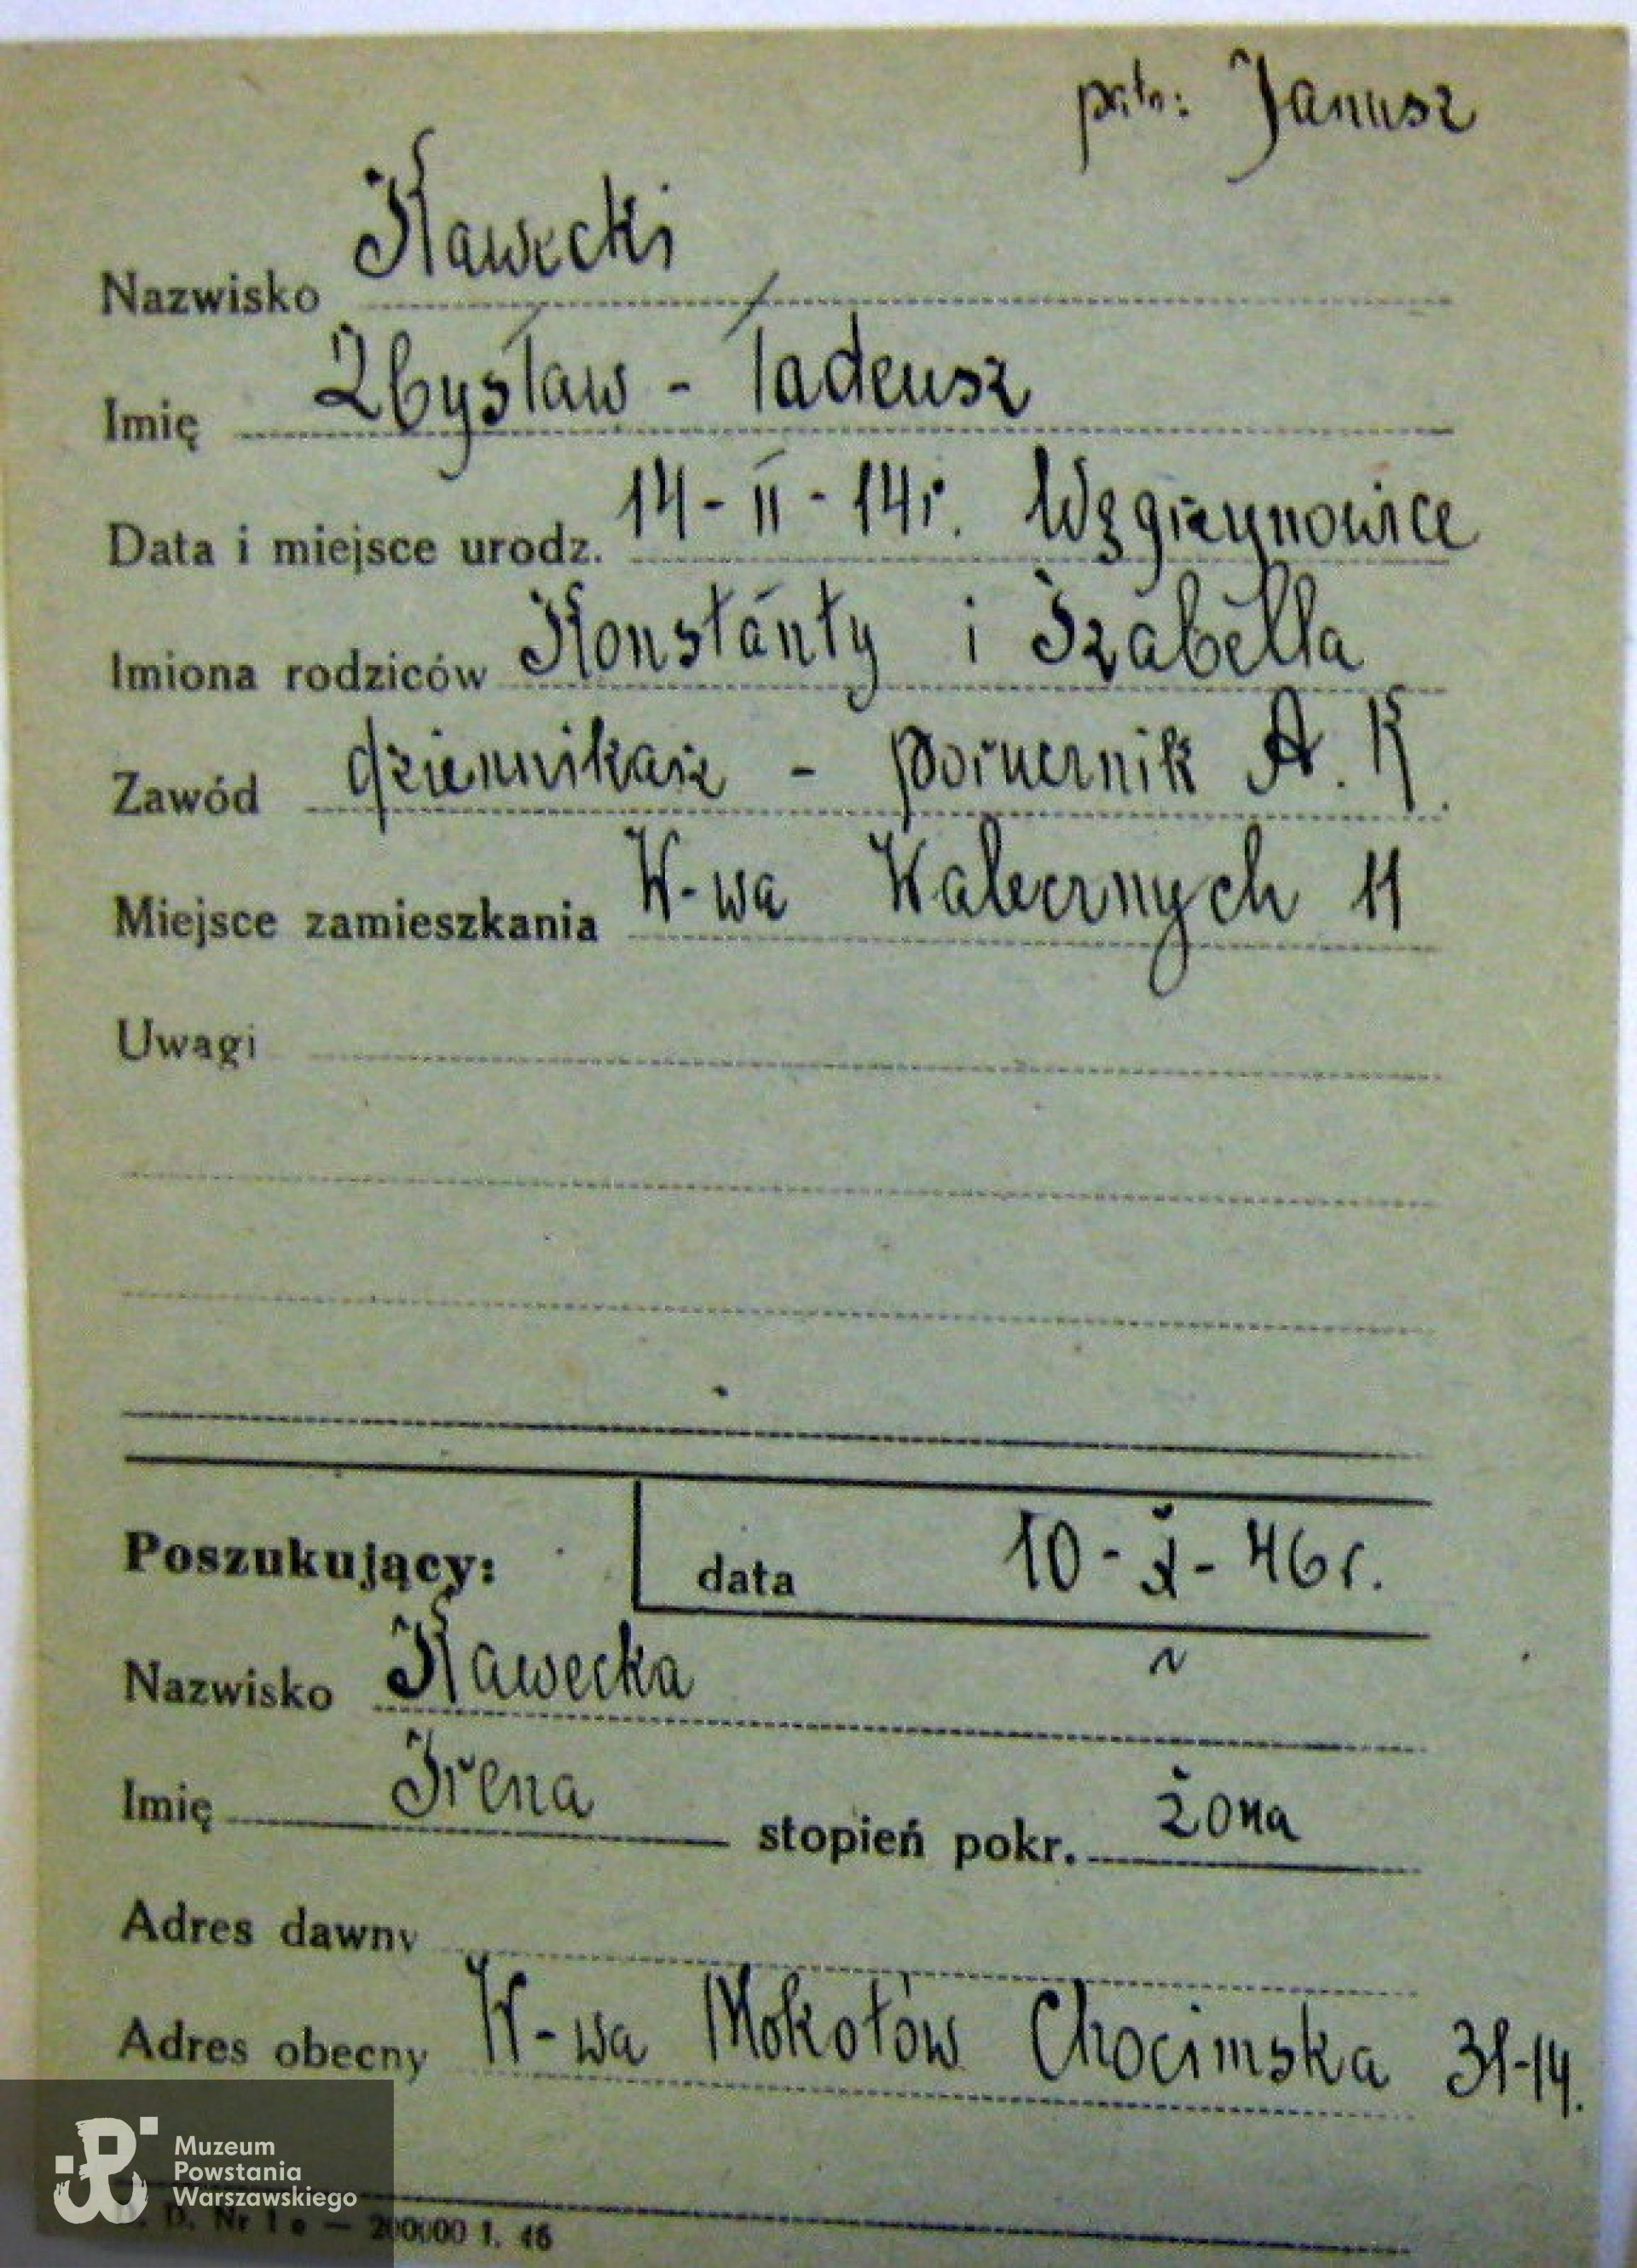 psłn: Janusz
Nazwisko Kawecki
Imię Zbysław - Tadeusz
Data i miejsce urodz. 14-II-14r. Węgrzynowice
Imiona rodziców Konstanty i Izabella
Zawód dziennikarz - porucznik A.K.
Miejsce zamieszkania W-wa Walecznych 11
Uwagi
Poszukujący: data 10-X-46r.
Nazwisko Kawecka
Imię Irena stopień pokr. żona
Adres dawny
Adres obecny W-wa Mokotów Chocimska 31-14.
Muzeum
Powstania
Warszawskiego
D. Nr 1 e — 200000 1. 46